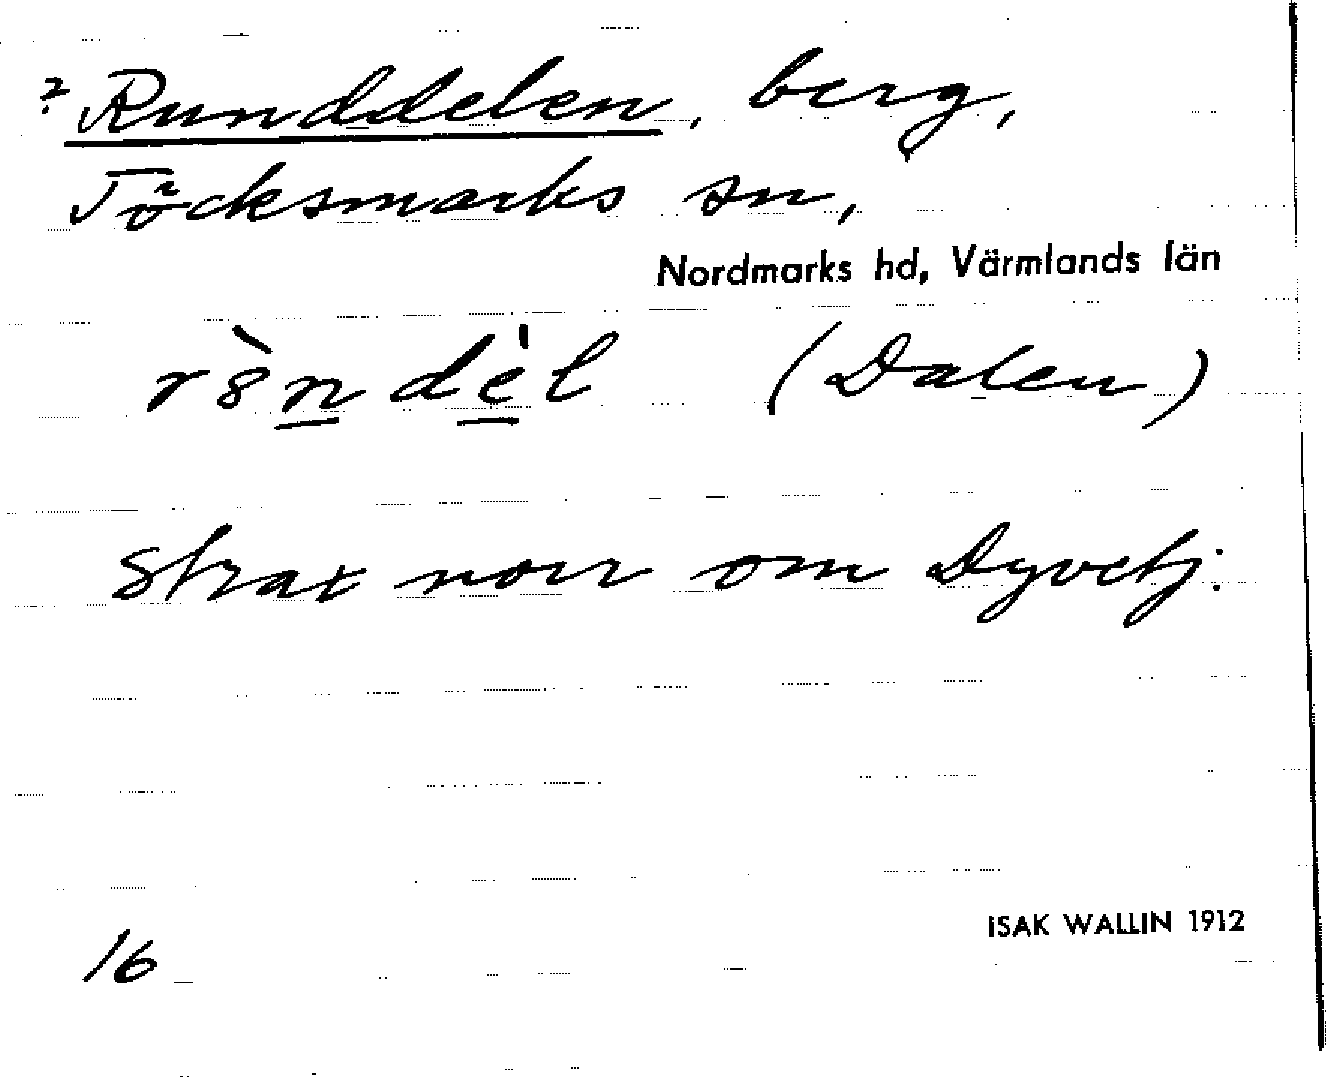 ? Runddelen, berg,
Töcksmarks sn,
Nordmarks hd, Värmlands län
r8̀ndèl (Dalen)
Strax norr om Dyvetj:
16
ISAK WALLIN 1912